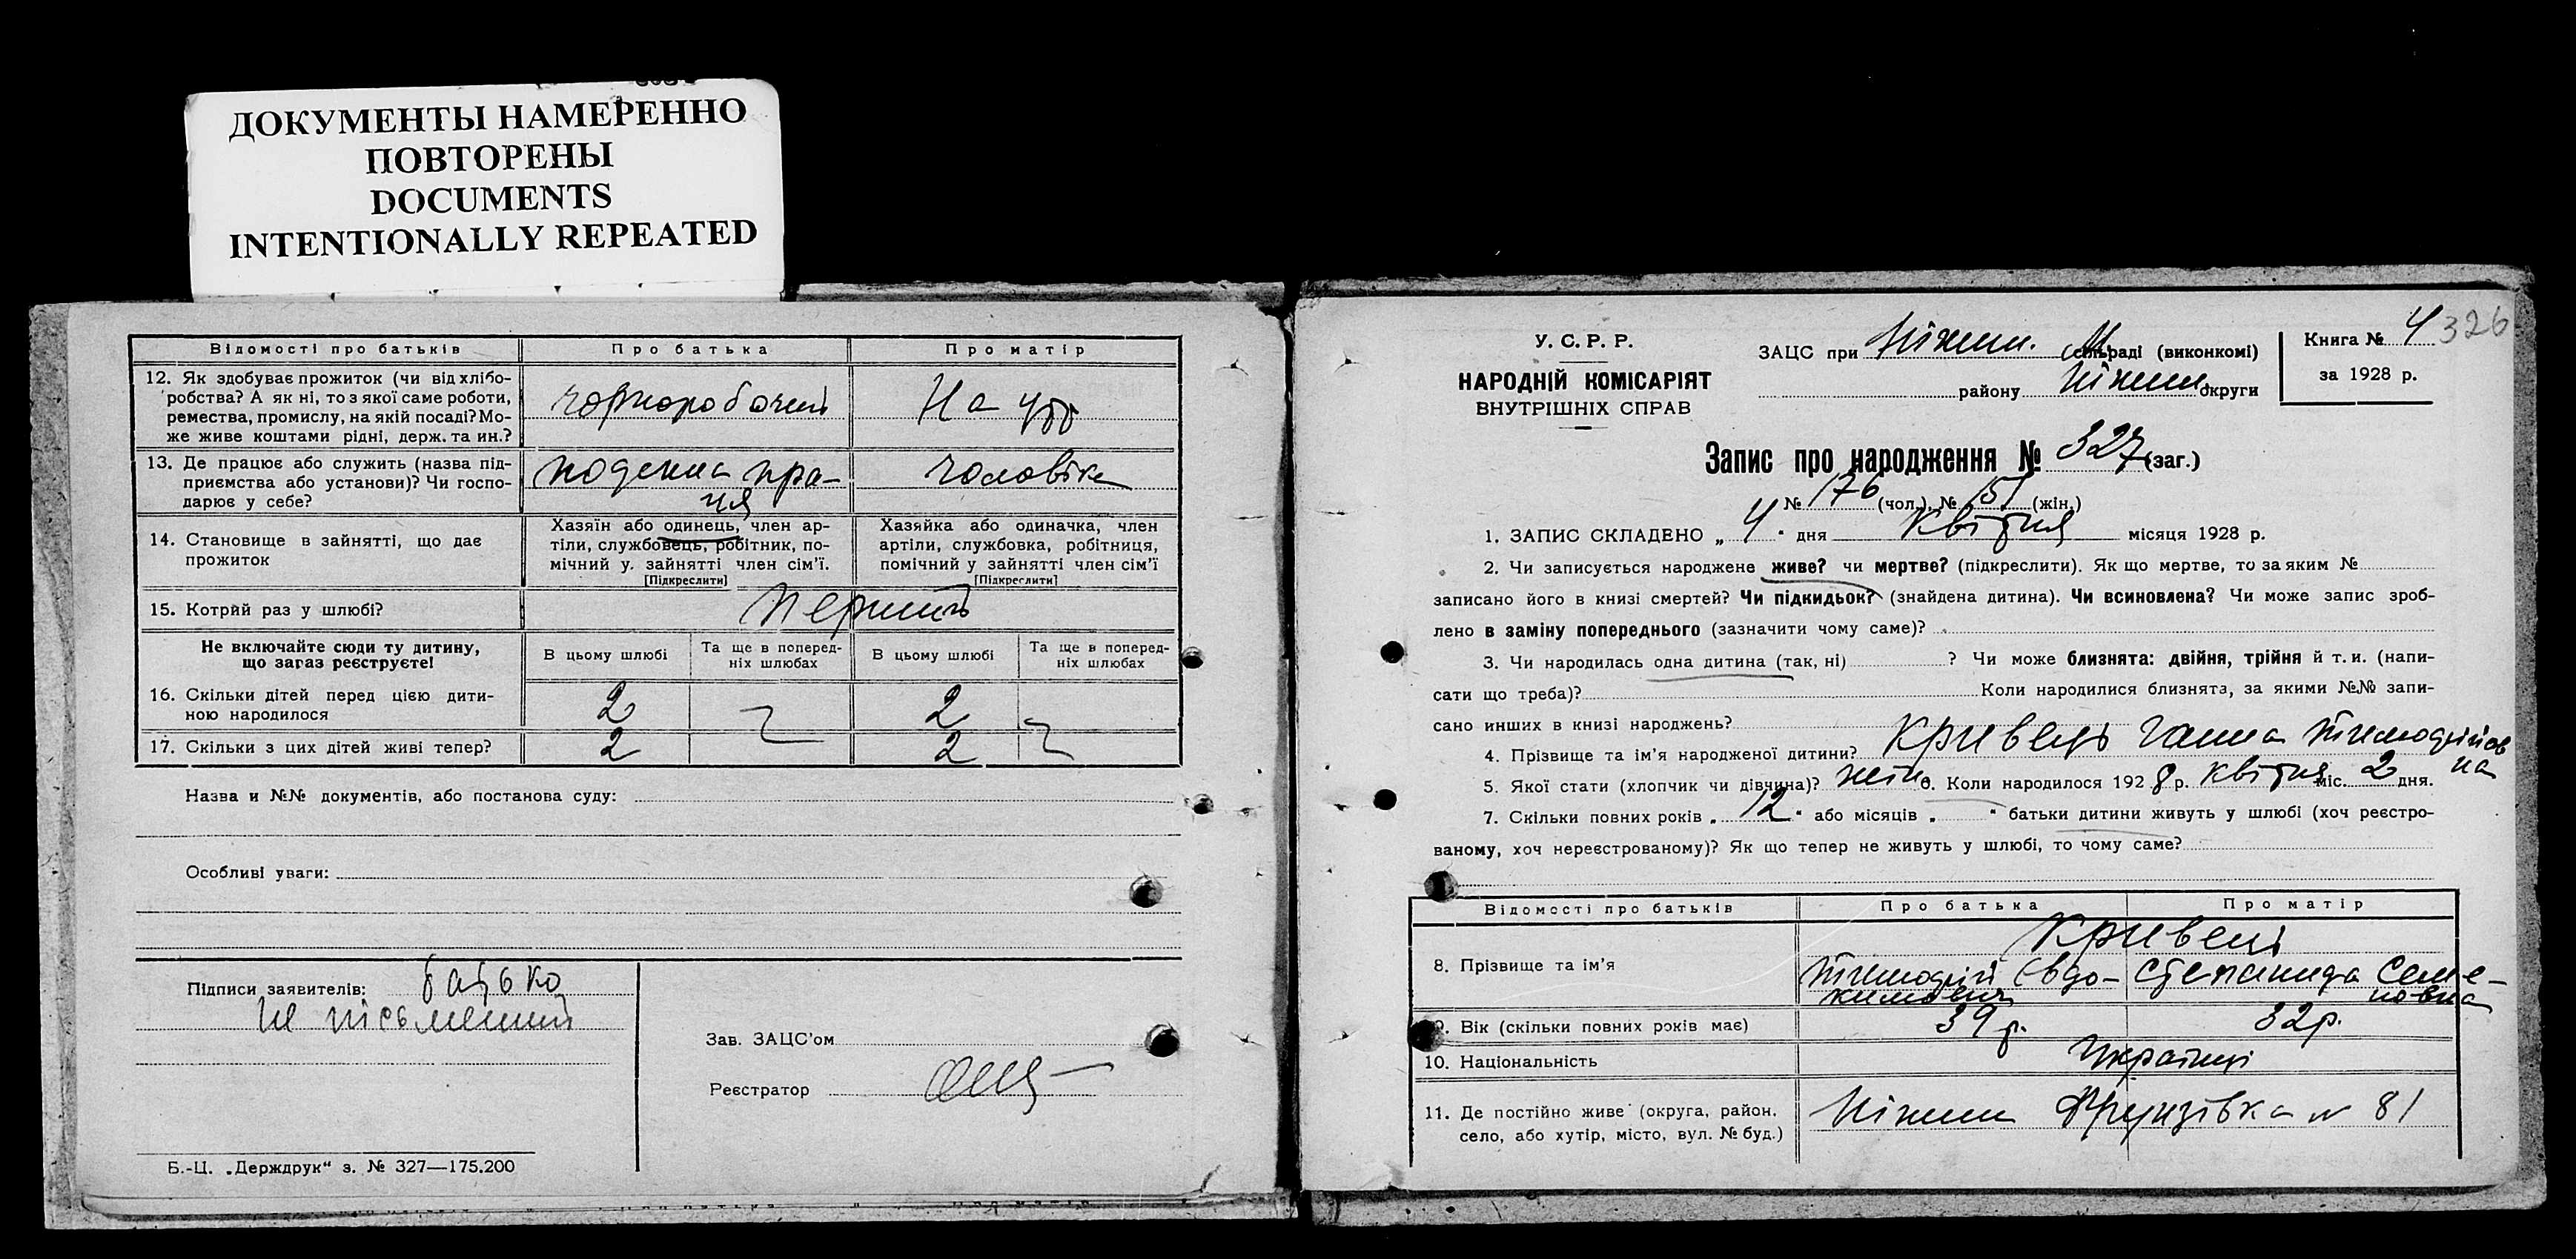 ДОКУМЕНТЫ НАМЕРЕННО
ПОВТОРЕНЫ
DOCUMENTS
INTENTIONALLY REPEATED
Відомості про батьків Про батька Про матір
12. Як здобуває прожиток (чи від хлібо-
робства? А як ні, то з якої саме роботи,
ремества, промислу, на якій посаді? Мо-
же живе коштами рідні, держ. та ин.?
чорноробочий На утр
13. Де працює або служить (назва під-
приємства або установи)? Чи госпо-
дарює у себе?
поденна пра-
ця
чоловіка
14. Становище в зайнятті, що дає
прожиток
Хазяїн або одинець, член ар-
тіли, службовець, робітник, по-
мічний у зайнятті член сім’ї.
[Підкреслити]
Хазяйка або одиначка, член
артіли, службовка, робітниця,
помічний у зайнятті член сім’ї
[Підкреслити]
15. Котрий раз у шлюбі? перший
Не включайте сюди ту дитину,
що зараз реєструєте!
В цьому шлюбі
Та ще в поперед-
ніх шлюбах
В цьому шлюбі
Та ще в поперед-
ніх шлюбах
16. Скільки дітей перед цією дити-
ною народилося
2 2
17. Скільки з цих дітей живі тепер? 2 2
Назва и №№ документів, або постанова суду:
Особливі уваги:
Підписи заявителів: батько
не пісьменний
Зав. ЗАЦС’ом
Реєстратор
Б.-Ц. „Держдрук“ з. № 327—175.200
У. С. Р. Р.
НАРОДНІЙ КОМІСАРІЯТ
ВНУТРІШНІХ СПРАВ
ЗАЦС при Ніжин. М. сільраді (виконкомі)
району Ніжин. округи
Книга № 4
за 1928 р.
326
Запис про народження № 327 (заг.)
№ 176 (чол.), № 151 (жін.)
1. ЗАПИС СКЛАДЕНО „ 4 “ дня квітня місяця 1928 р.
2. Чи записується народжене живе? чи мертве? (підкреслити). Як що мертве, то за яким №
записано його в книзі смертей? Чи підкидьок? (знайдена дитина). Чи всиновлена? Чи може запис зроб-
лено в заміну попереднього (зазначити чому саме)?
3. Чи народилась одна дитина (так, ні) ? Чи може близнята: двійня, трійня й т. и. (напи-
сати що треба)? Коли народилися близнята, за якими №№ запи-
сано инших в книзі народжень?
4. Прізвище та ім’я народженої дитини? Кривець Ганна Тимофіїв
на
5. Якої стати (хлопчик чи дівчина)? жін. 6. Коли народилося 1928 р. квітня міс. 2 дня.
7. Скільки повних років „ 12 “ або місяців „ “ батьки дитини живуть у шлюбі (хоч реєстро-
ваному, хоч нереєстрованому)? Як що тепер не живуть у шлюбі, то чому саме?
Відомості про батьків Про батька Про матір
8. Прізвище та ім’я
Кривець
Тимофій Євдо-
кимович
Степанида Семе-
новна
9. Вік (скільки повних років має) 39 р. 32 р.
10. Національність Українці
11. Де постійно живе (округа, район,
село, або хутір, місто, вул. № буд.)
Ніжин Фрунзівка № 81